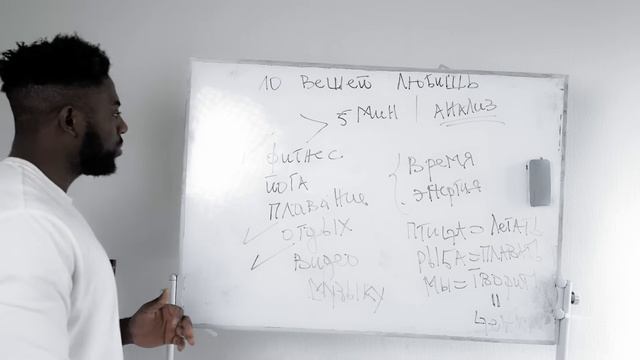 10 вещей любишь
5 мин | Анализ
фитнес
йога
плавание
отдых
видео
музыку
Время
энергия
птица = летать
рыба = плавать
мы = творить
=